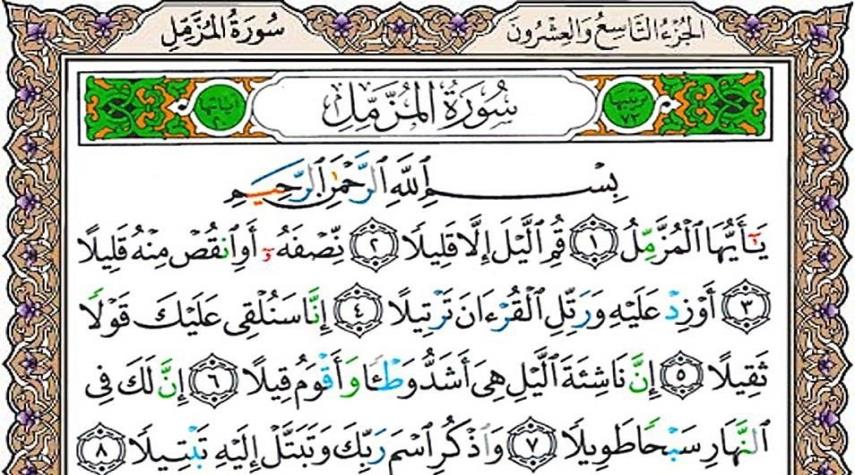 الجُزْءُ التَّاسِعُ وَالعِشْرُونَ
سُورَةُ المُزَّمِّلِ
ترتيبها ٧٣
سُورَةُ المُزَّمِّلِ
آياتها ٢٠
بِسْمِ ٱللَّهِ ٱلرَّحْمَٰنِ ٱلرَّحِيمِ
يَٰٓأَيُّهَا ٱلْمُزَّمِّلُ ١ قُمِ ٱلَّيْلَ إِلَّا قَلِيلًا ٢ نِّصْفَهُۥٓ أَوِ ٱنقُصْ مِنْهُ قَلِيلًا
٣ أَوْ زِدْ عَلَيْهِ وَرَتِّلِ ٱلْقُرْءَانَ تَرْتِيلًا ٤ إِنَّا سَنُلْقِى عَلَيْكَ قَوْلًا
ثَقِيلًا ٥ إِنَّ نَاشِئَةَ ٱلَّيْلِ هِىَ أَشَدُّ وَطْـًٔا وَأَقْوَمُ قِيلًا ٦ إِنَّ لَكَ فِى
ٱلنَّهَارِ سَبْحًا طَوِيلًا ٧ وَٱذْكُرِ ٱسْمَ رَبِّكَ وَتَبَتَّلْ إِلَيْهِ تَبْتِيلًا ٨